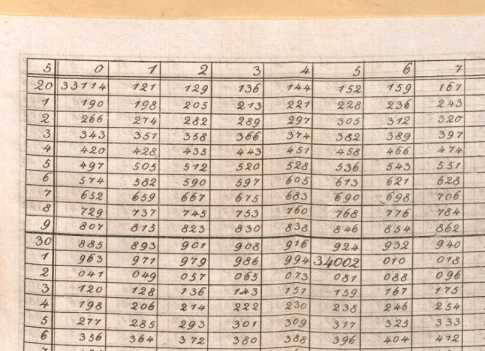 5 0 1 2 3 4 5 6 7
20 33114 121 129 136 144 152 159 167
1 190 198 205 213 221 228 236 243
2 266 274 282 289 297 305 312 320
3 343 351 358 366 374 382 389 397
4 420 428 435 443 451 458 466 474
5 497 505 512 520 528 536 543 551
6 574 582 590 597 605 613 621 628
7 652 659 667 675 683 690 698 706
8 729 737 745 753 760 768 776 784
9 807 815 823 830 838 846 854 862
30 885 893 901 908 916 924 932 940
1 963 971 979 986 994 34002 010 018
2 041 049 057 065 073 081 088 096
3 120 128 136 143 151 159 167 175
4 198 206 214 222 230 238 246 254
5 277 285 293 301 309 317 325 333
6 356 364 372 380 388 396 404 412